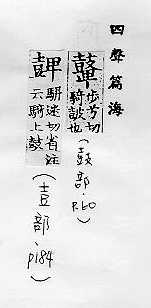 四聲篇海
鼙 步兮切
騎鼓也
（鼓部、P.60）
駢迷切省注
云騎上鼓
（壴部、P184）